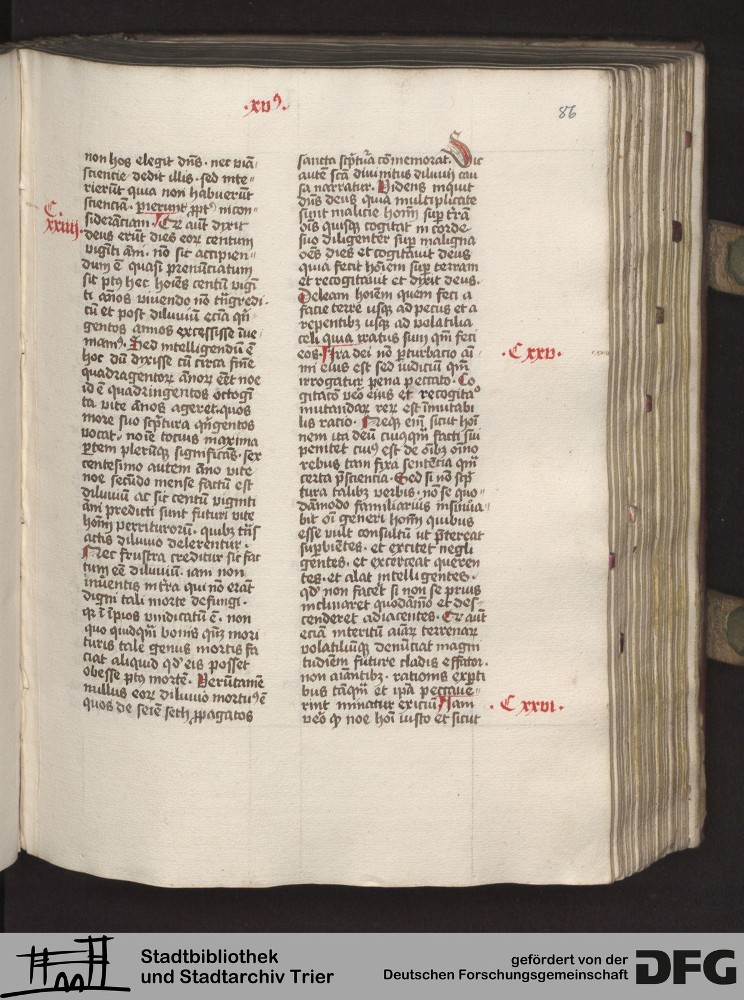 ·xvꝰ·
86
non hos elegit dn̄s · nec viā=
scientie dedit illis · sed inte=
rierūt quia non habuerūt
scienciā · pierunt ꝓpt̕ incon=
C·
xxiiij·
siderāciam · Qꝛ aūt dixit
deus erūt dies eoꝝ centum
viginti āni · nō sic accipien=
dum ē quasi prenūciatum
sit pꝰ hec hoīes centū vigī
ti ānos viuendo nō t̄ngredi·
cū et post diluuiū eciā qn̄
gentos annos excessisse īue
niamꝰ · Sed intelligendū ē
hoc dm̄ dixisse cū circa finē
quadragentoꝝ ānoꝝ eēt noe
id ē quadringentos octogī
ta vite ānos ageret · quos
more suo scp̄tura qn̄gentos
vocat · noīe tocius maxima
ꝑtem pleꝝq; significās · sex
centesimo autem āno vite
noe secūdo mense factū est
diluuiū ac sic centū viginti
āni predicti sunt futuri vite
hoīm periturorū · quibꝫ trā̄s
actis diluuio delerentur ·
Nec frustra creditur sic fac
tum eē diluuiū · iam non
inuentis in tr̄a qui nō erāt
digni tali morte defungi ·
qꝛ ī īpios vindicatū ē · non
quo quidqm̄ bonis qn̄qꝫ mori
turis tale genus mortis fa
ciat aliquid qd̕ eis posset
obesse pꝰ mortē · Verūtamē
nullus eoꝝ diluuio mortuꝰ ē
quos de seīe seth ꝓpagatos
sancta scp̄tura cōmemorat · Sic
autē scā diuinitus diluuij cau
sa narratur · Videns inquit
dn̄s deus quia multiplicate
sunt malicie hoīm sup̄ tr̄ā
oīs quisqꝫ cogitat in corde
suo diligenter sup̄ maligna
oēs dies et cogitauit deus
quia fecit hoīem sup̄ terram
et recogitauit et dixit deus ·
Deleam hoīem quem feci a
facie terre vsqꝫ ad pecus et a
repentibꝫ vsqꝫ ad volatilia
celi quia iratus sum qm̄ feci
eos · Ira dei nō ꝑturbacio aī
· C xxv·
mi eius est sed iudiciū qm̄
irrogatur pena peccato · Co
gitacō veꝰ eius et recogitacō
mutandaꝝ reꝝ est īmutabi
lis racio · Neqꝫ eni̅ sicut hoī
nem ita deū cuiusqm̄ facti sui
penitet cuiꝰ est de oībꝫ oīno
rebus tam fixa sentēcia qm̄
certa p̄sciencia · Sed si nō scp̄
tura talibꝫ verbis · nō se quo=
dāmodo familiarius insinua=
bit oī generi hoīm quibus
esse vult consultū vt ꝑtereat
sup̄bientes · et excitet negli
gentes · et exerceat queren
tes · et alat intelligentes ·
qd̕ non facēt si non se prius
inclinaret quodāmō et des=
cenderet ad iacentes · Qꝛ aūt
eciā interitū aīaꝝ terrenaꝝ
volatiliūqꝫ denūciat magni
tudinē future cladis effator ·
non aīantibꝫ · rationis exp̄ti
bus tāqm̄ et ip̄a peccaue=
rint minatur exiciū · Iam
· C xxvi·
veꝰ ꝙ noe hoī iusto et sicut
Stadtbibliothek
und Stadtarchiv Trier
gefördert von der
Deutschen Forschungsgemeinschaft
DFG